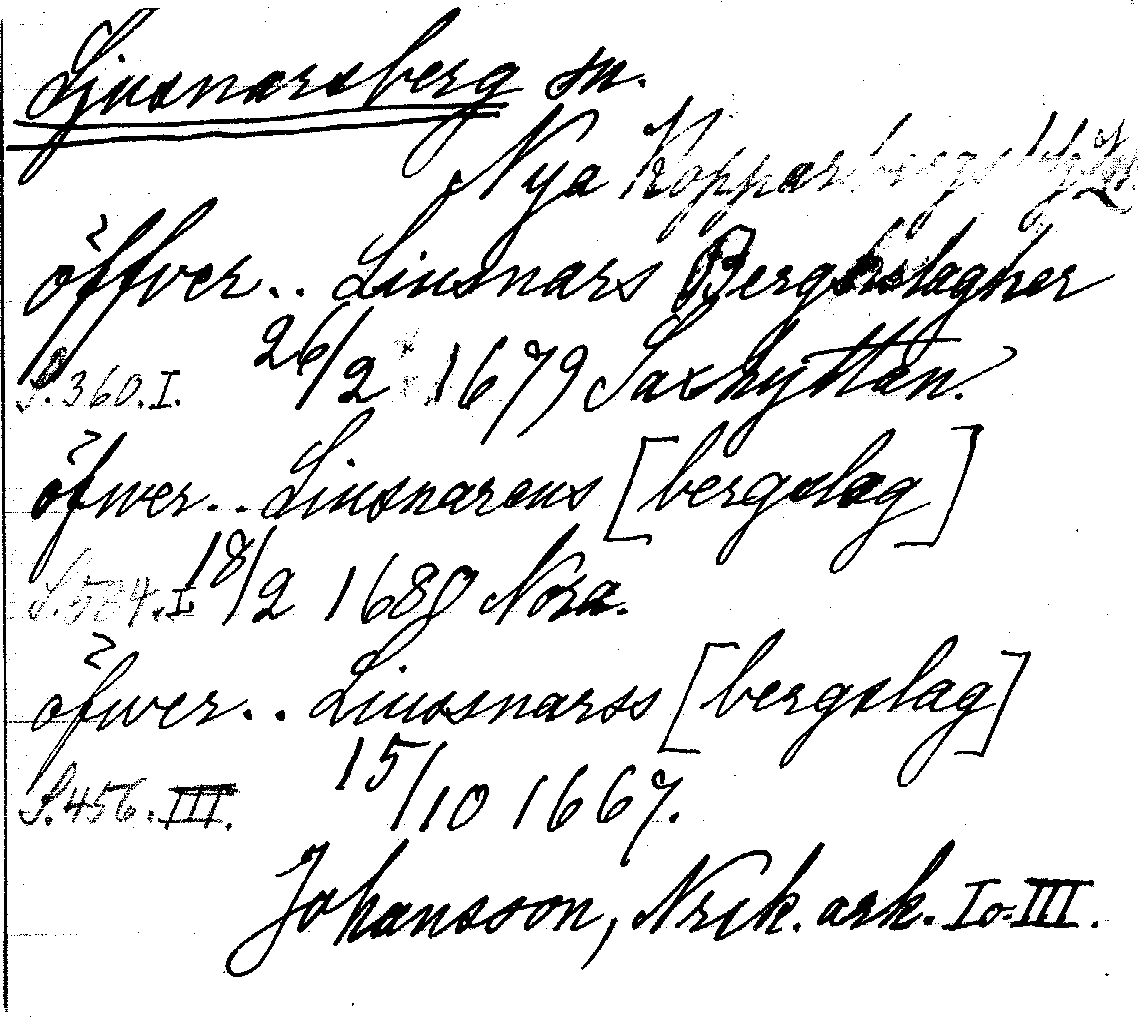 Ljusnarsberg sn.
Nya Kopparbergs
öffver.. Liusnars Bergslagher
S. 360. I. 26/2 1679 Saxhyttan.
öfwer.. Liusnarens [bergslag]
S. 584. I. 18/2 1680 Nora.
öfwer.. Liussnarss [bergslag]
S. 456. III. 15/10 1667.
Johansson, Nrik. ark. I o. III.